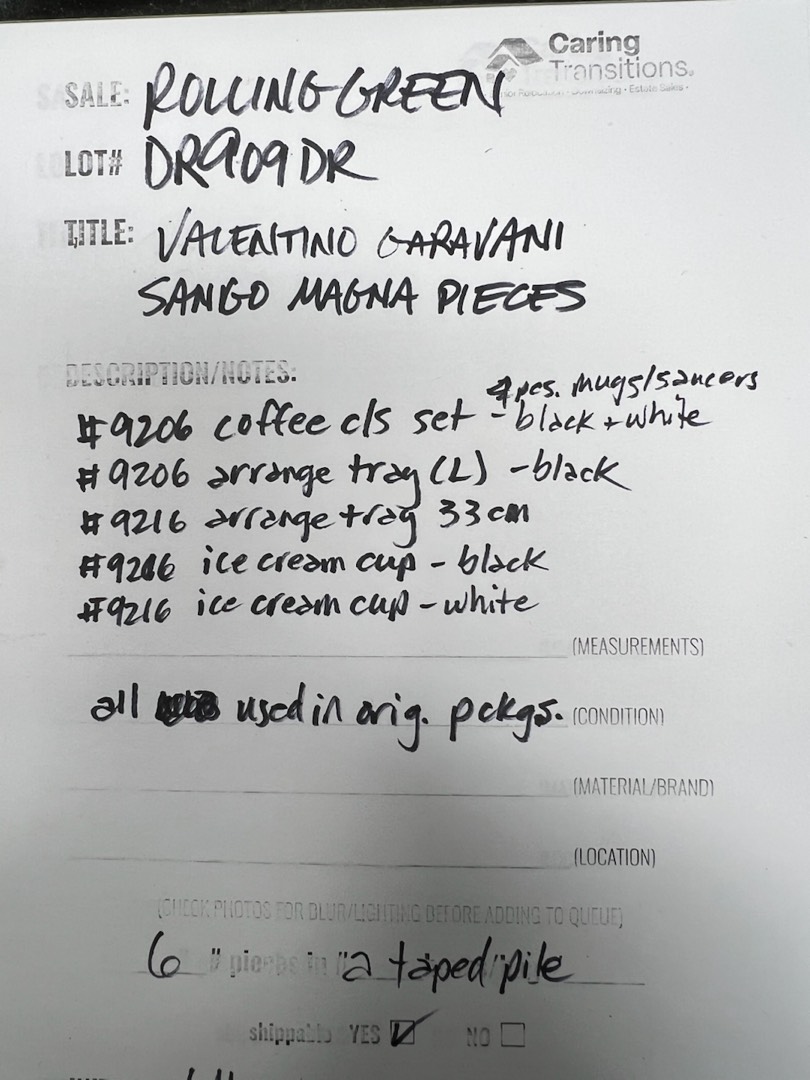 Caring
Transitions.
Estate Sales
SALE: ROLLING GREEN
LOT# DR909DR
TITLE: VALENTINO GARAVANI
SANGO MAGNA PIECES
DESCRIPTION/NOTES:
4 pcs. mugs/saucers
#9206 coffee c/s set - black + white
#9206 arrange tray (L) - black
#9216 arrange tray 33 cm
ice cream cup - black
#9216 ice cream cup - white
(MEASUREMENTS)
all used in orig. pckgs. (CONDITION)
(MATERIAL/BRAND)
(LOCATION)
(CHECK PHOTOS FOR BLUR/LIGHTING BEFORE ADDING TO QUEUE)
6 " pieces in "a taped" pile
shippable YES ☑ NO ☐